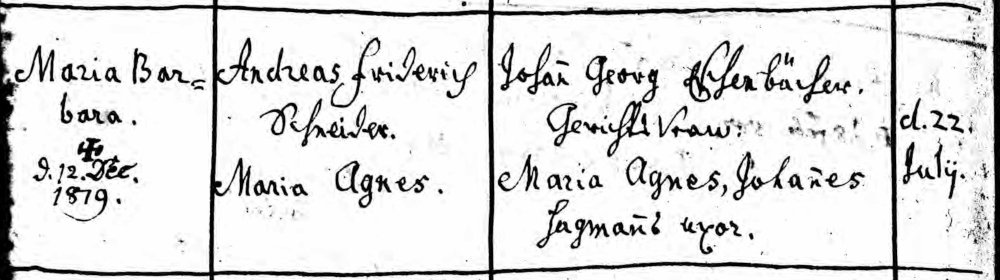 Maria Bar=
bara.
d. 12. Dec.
1879.
Andreas Friderich
Schneider.
Maria Agnes.
Johan̄ Georg Eschenbächer.
Gerichts
Maria Agnes, Johan̄es
Hagman̄s uxor.
d. 22.
Julij.